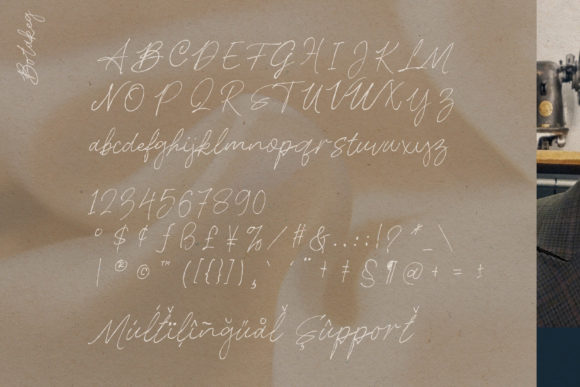 Botakeg
ABCDEFGHIJKLM
NOPQRSTUVWXYZ
abcdefghijklmnopqrstuvwxyz
1234567890
° $ ¢ ƒ ß £ ¥ ‰ / # & . . : ; ! ? * _ \
| ® © ™ ( [ { } ] ) , ` ´ ¨ † ‡ § ¶ @ + = ±
Múltïļîñğüåľ Şûpporť